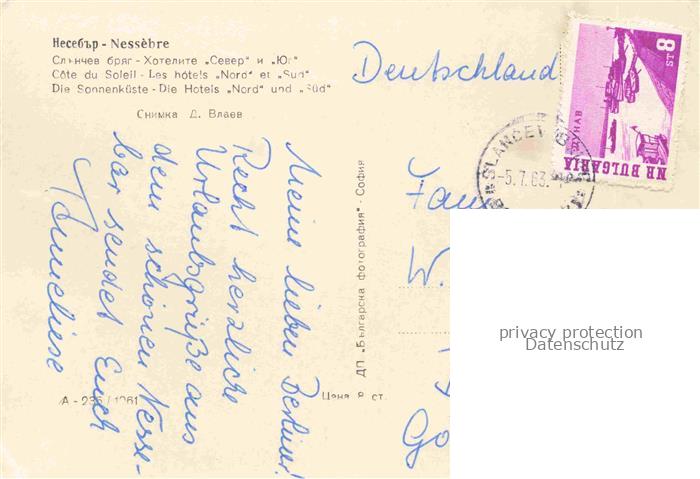 Несебър - Nessèbre
Слънчев бряг - Хотелите „Север" и „Юг"
Côte du Soleil - Les hôtels „Nord" et „Sud"
Die Sonnenküste - Die Hotels „Nord" und „Süd"
Снимка Д. Влаев
Meine lieben Berliner!
Recht herzliche
Urlaubsgrüße aus
dem schönen Nesse-
bar sendet Euch
Anneliese
А - 235 / 1961
ДП „Българска фотография" - София
Цена 8 ст.
Deutschland
8 ST
ДУНАВ
NR BULGARIA
SLANCEV
-5.7.63.
Fam
W.
privacy protection
Datenschutz